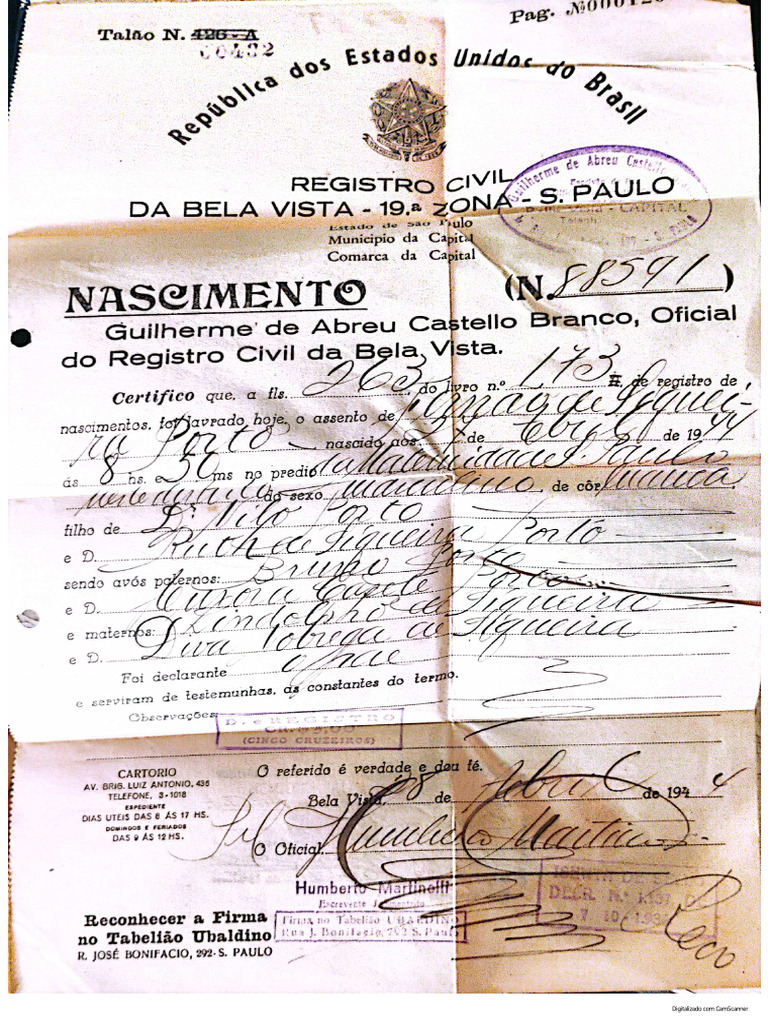 Talão N. 426 - A
00482
Pag. №
República dos Estados Unidos do Brasil
REGISTRO CIVIL
DA BELA VISTA - 19.ª ZONA - S. PAULO
Guilherme de Abreu Castello
CAPITAL
S. PAULO
Estado de São Paulo
Municipio da Capital
Comarca da Capital
NASCIMENTO (N. 88591)
Guilherme de Abreu Castello Branco, Oficial
do Registro Civil da Bela Vista.
Certifico que, a fls. 263 do livro n.º 173 de registro de
nascimentos, foi lavrado hoje, o assento de Fernão de Siquei-
ra Porto nascido aos de Abril de 1944
ás 8 hs. e 30 ms no predio Maternidade S. Paulo
neste do sexo masculino de côr branca
filho de Dr. Nilo Porto
e D. Ruth de Siqueira Porto
sendo avós paternos: Bruno Porto
e D. Aurora Porto
e maternos: Lindolpho de Siqueira
e D. Diva de Siqueira
Foi declarante o pae
e serviram de testemunhas, as constantes do termo.
Observações:
D. e REGISTRO
CR. $ 5,00
(CINCO CRUZEIROS)
O referido é verdade e dou fé.
Bela Vista, 28 de Abril de 1944
O Oficial, Humberto Martinelli
CARTORIO
AV. BRIG. LUIZ ANTONIO, 436
TELEFONE, 3-1018
EXPEDIENTE
DIAS UTEIS DAS 8 ÁS 17 HS.
DOMINGOS E FERIADOS
DAS 9 ÁS 12 HS.
Humberto Martinelli
Escrevente
Firma no Tabelião UBALDINO
Rua J. Bonifacio, 292 S. Paulo
ISENTA DE SELO
DECR. N.º 1.137 DE
7 10 - 1.936
Reconhecer a Firma
no Tabelião Ubaldino
R. JOSÉ BONIFACIO, 292 - S. PAULO
Digitalizado com CamScanner